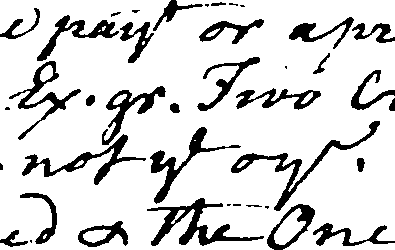 pais^t or apr
Ex. gr. Two C
not y^t oy^r.
ed & the One